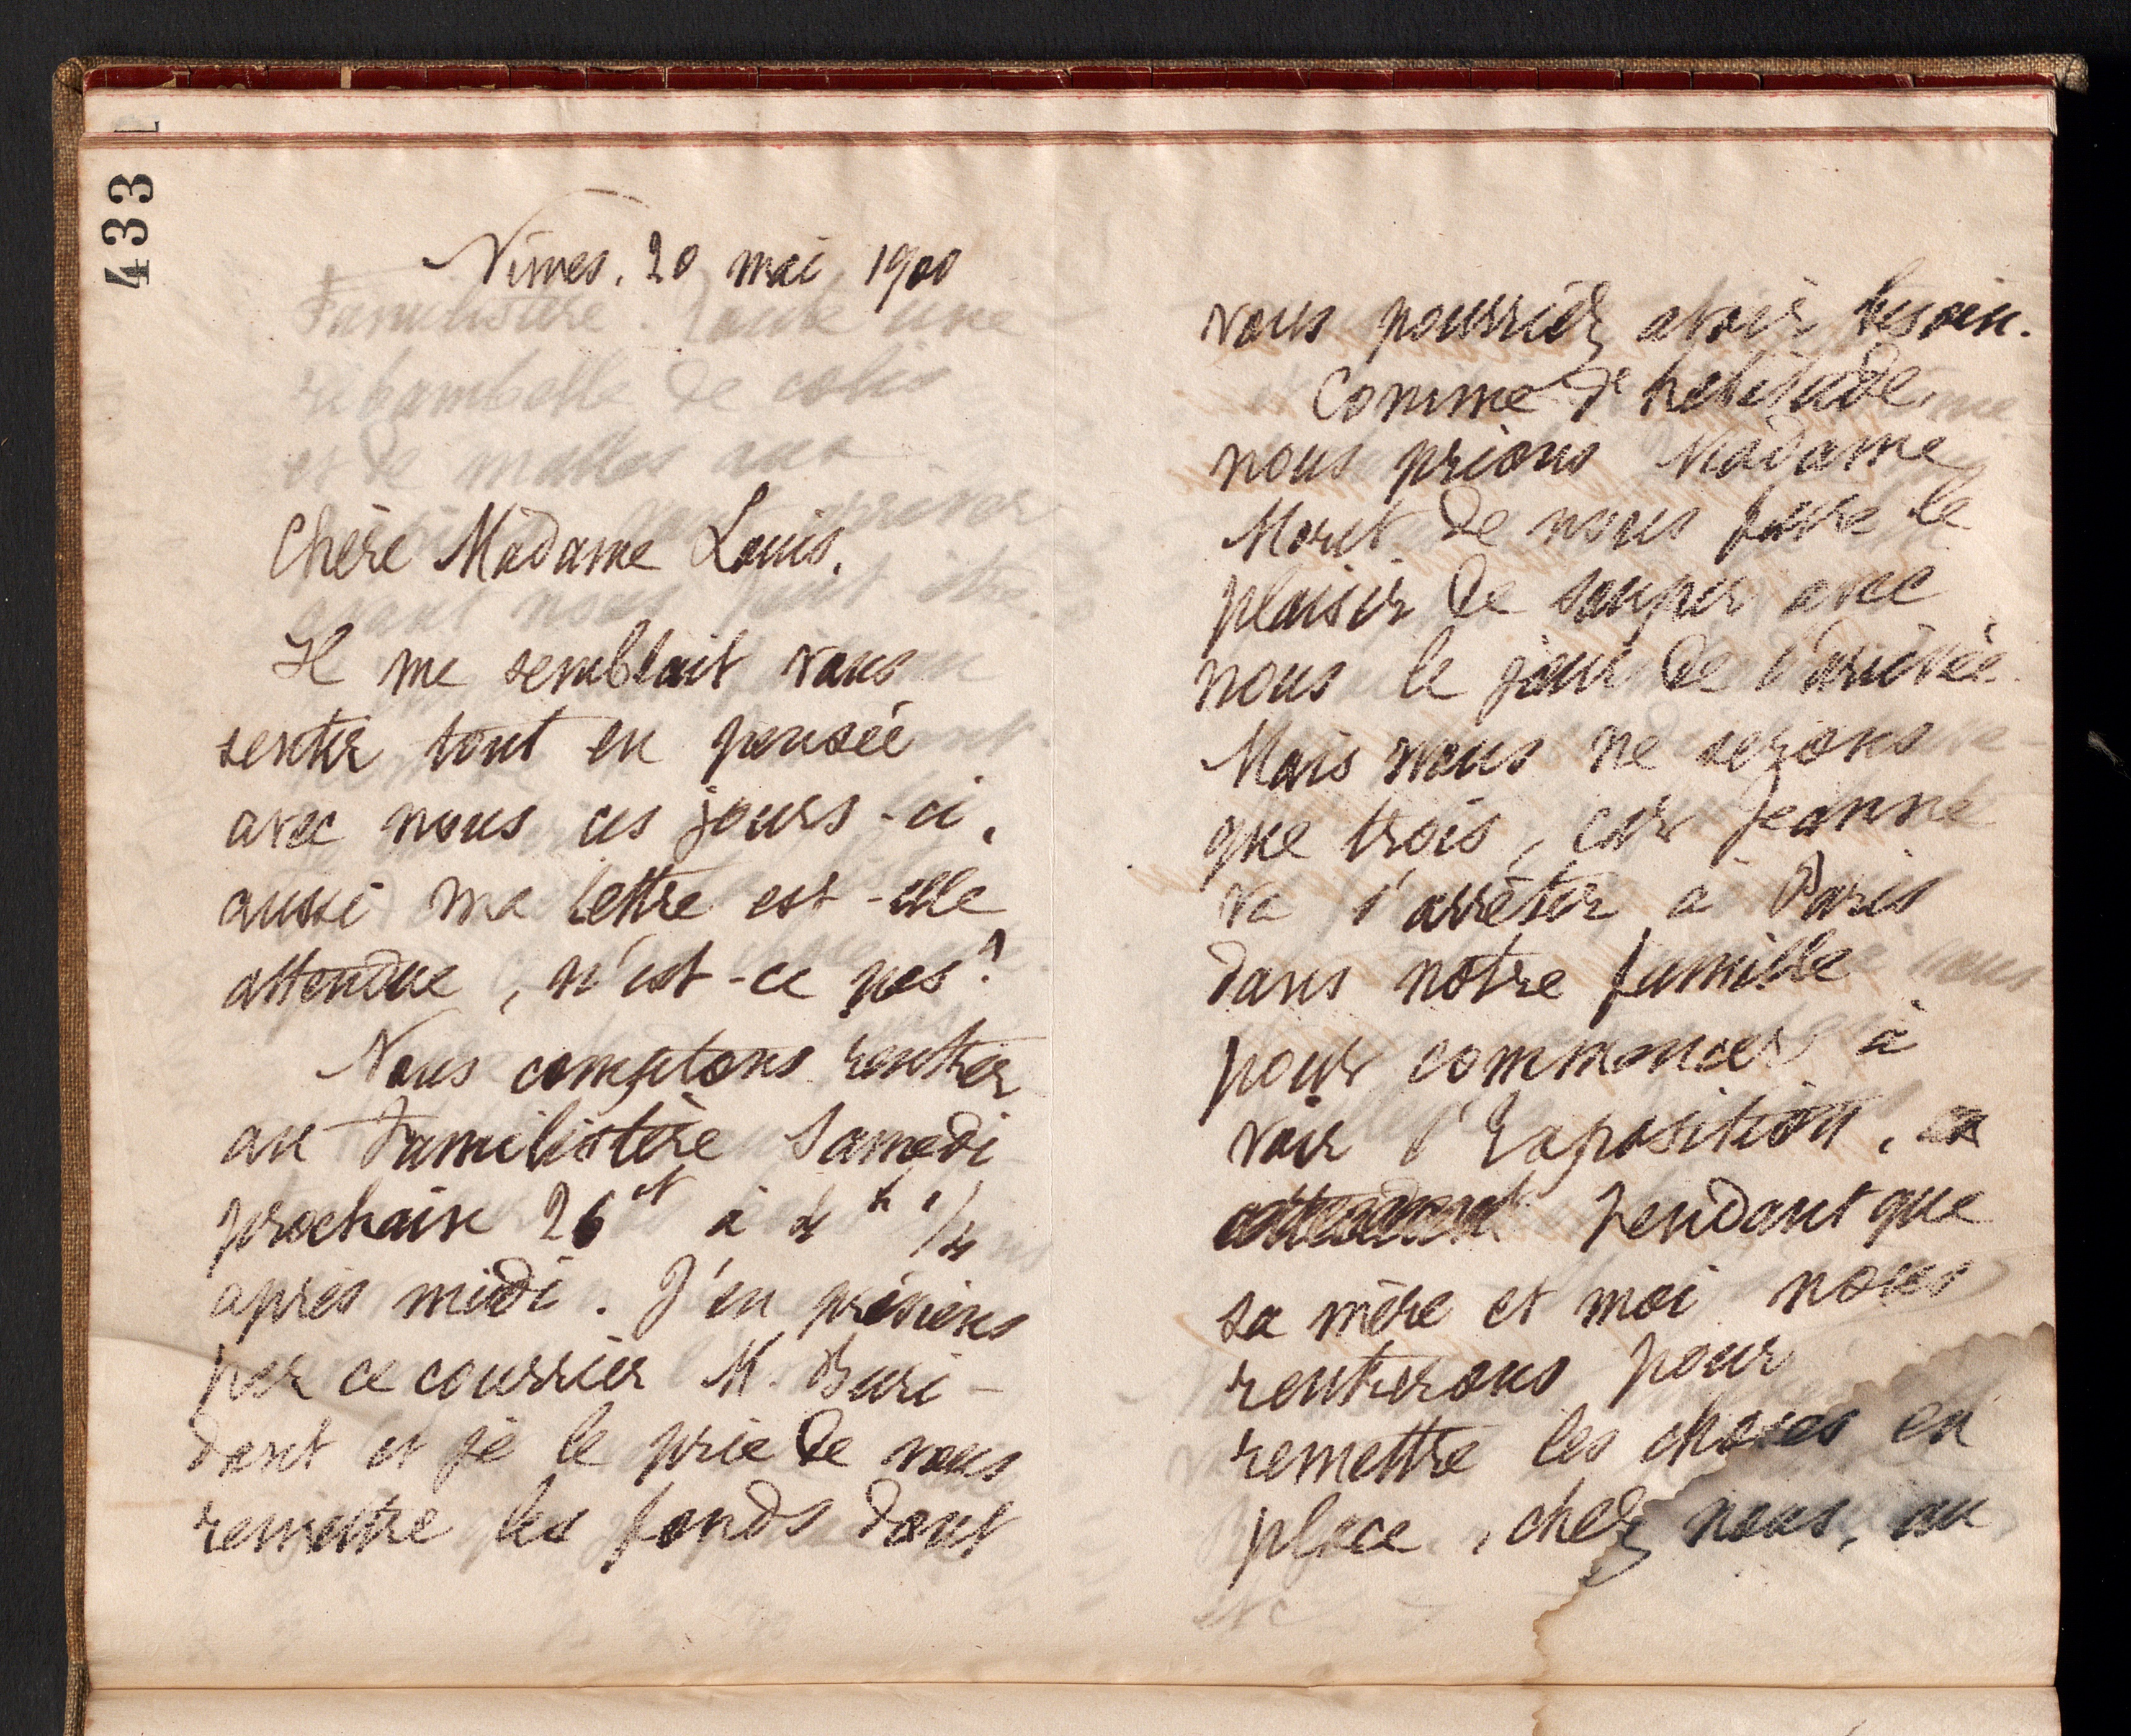 433
Nîmes. 20 mai 1900
Chère Madame Louis,
Il me semblait vous
sentir tout en pensée
avec nous ces jours-ci,
aussi ma lettre est-elle
attendue, n'est-ce pas?
Nous comptons rentrer
au Familistère Samedi
prochain 26 ct à 4 h 1/4
après midi. J'en préviens
par ce courrier M. Buri-
dant et je le prie de vous
remettre les fonds dont
vous pourriez avoir besoin.
Comme d'habitude
nous prions Madame
Moret de nous faire le
plaisir de souper avec
nous le jour de l'arrivée.
Mais nous ne serons
que trois, car Jeanne
va s'arrêter à Paris
dans notre famille
pour commencer à
voir l'Exposition,
pendant que
sa mère et moi nous
rentrerons pour
remettre les choses en
place, chez nous, au